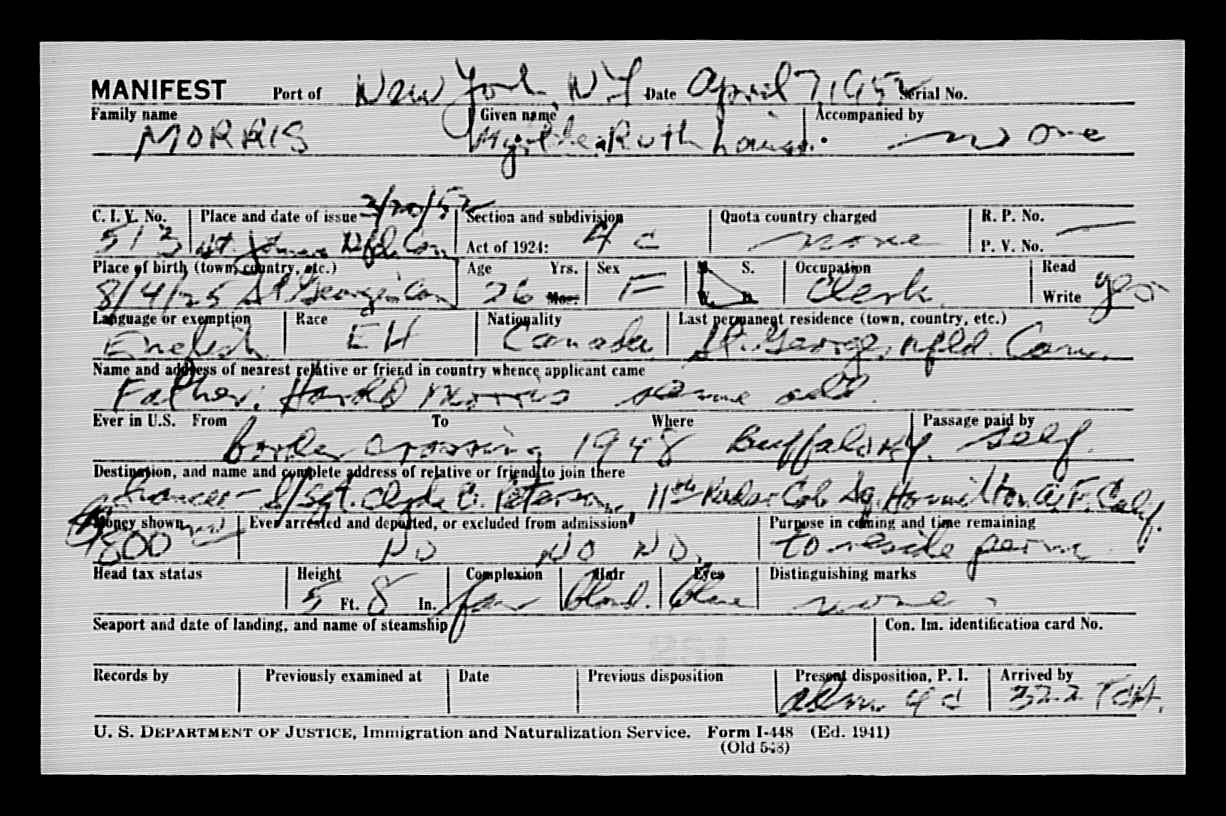 MANIFEST Port of New York, N.Y. Date April 7, 1952 Serial No.
Family name Given name Accompanied by
MORRIS Myrtle Ruth Louise. no one
C. I. V. No. Place and date of issue 2/20/52 Section and subdivision Quota country charged R. P. No. —
513 St. Johns Nfld Can Act of 1924: 4 c none P. V. No.
Place of birth (town, country, etc.) Age Yrs. Sex M. S. Occupation Read
8/4/25 St Georges Can 26 Mos. F W. D. Clerk Write yes
Language or exemption Race Nationality Last permanent residence (town, country, etc.)
English EH Canada St. Georges, Nfld. Can.
Name and address of nearest relative or friend in country whence applicant came
Father: Harold Morris same add.
Ever in U.S. From To Where Passage paid by
border crossing 1948 Buffalo NY. self.
Destination, and name and complete address of relative or friend to join there
fiancee - S/Sgt. Clyde C. Peterson, 11th Radar Cal Sq. Hamilton A.F. Calif.
Money shown Ever arrested and deported, or excluded from admission Purpose in coming and time remaining
800 NO NO NO. to reside perm
Head tax status Height Complexion Hair Eyes Distinguishing marks
5 Ft. 8 In. fair Blond. Blue none -
Seaport and date of landing, and name of steamship Con. Im. identification card No.
Records by Previously examined at Date Previous disposition Present disposition, P. I. Arrived by
adm. 4 c 322 TCA.
U. S. DEPARTMENT OF JUSTICE, Immigration and Naturalization Service. Form I-448 (Ed. 1941)
(Old 548)